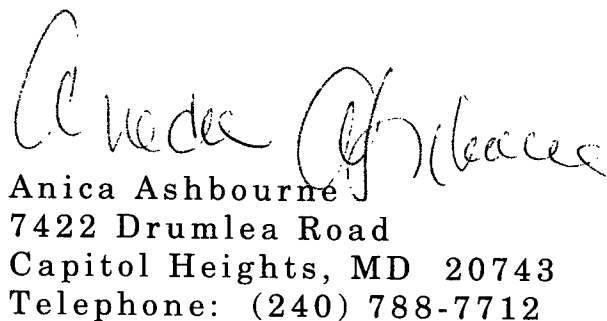 Anica Ashbourne
Anica Ashbourne
7422 Drumlea Road
Capitol Heights, MD 20743
Telephone: (240) 788-7712